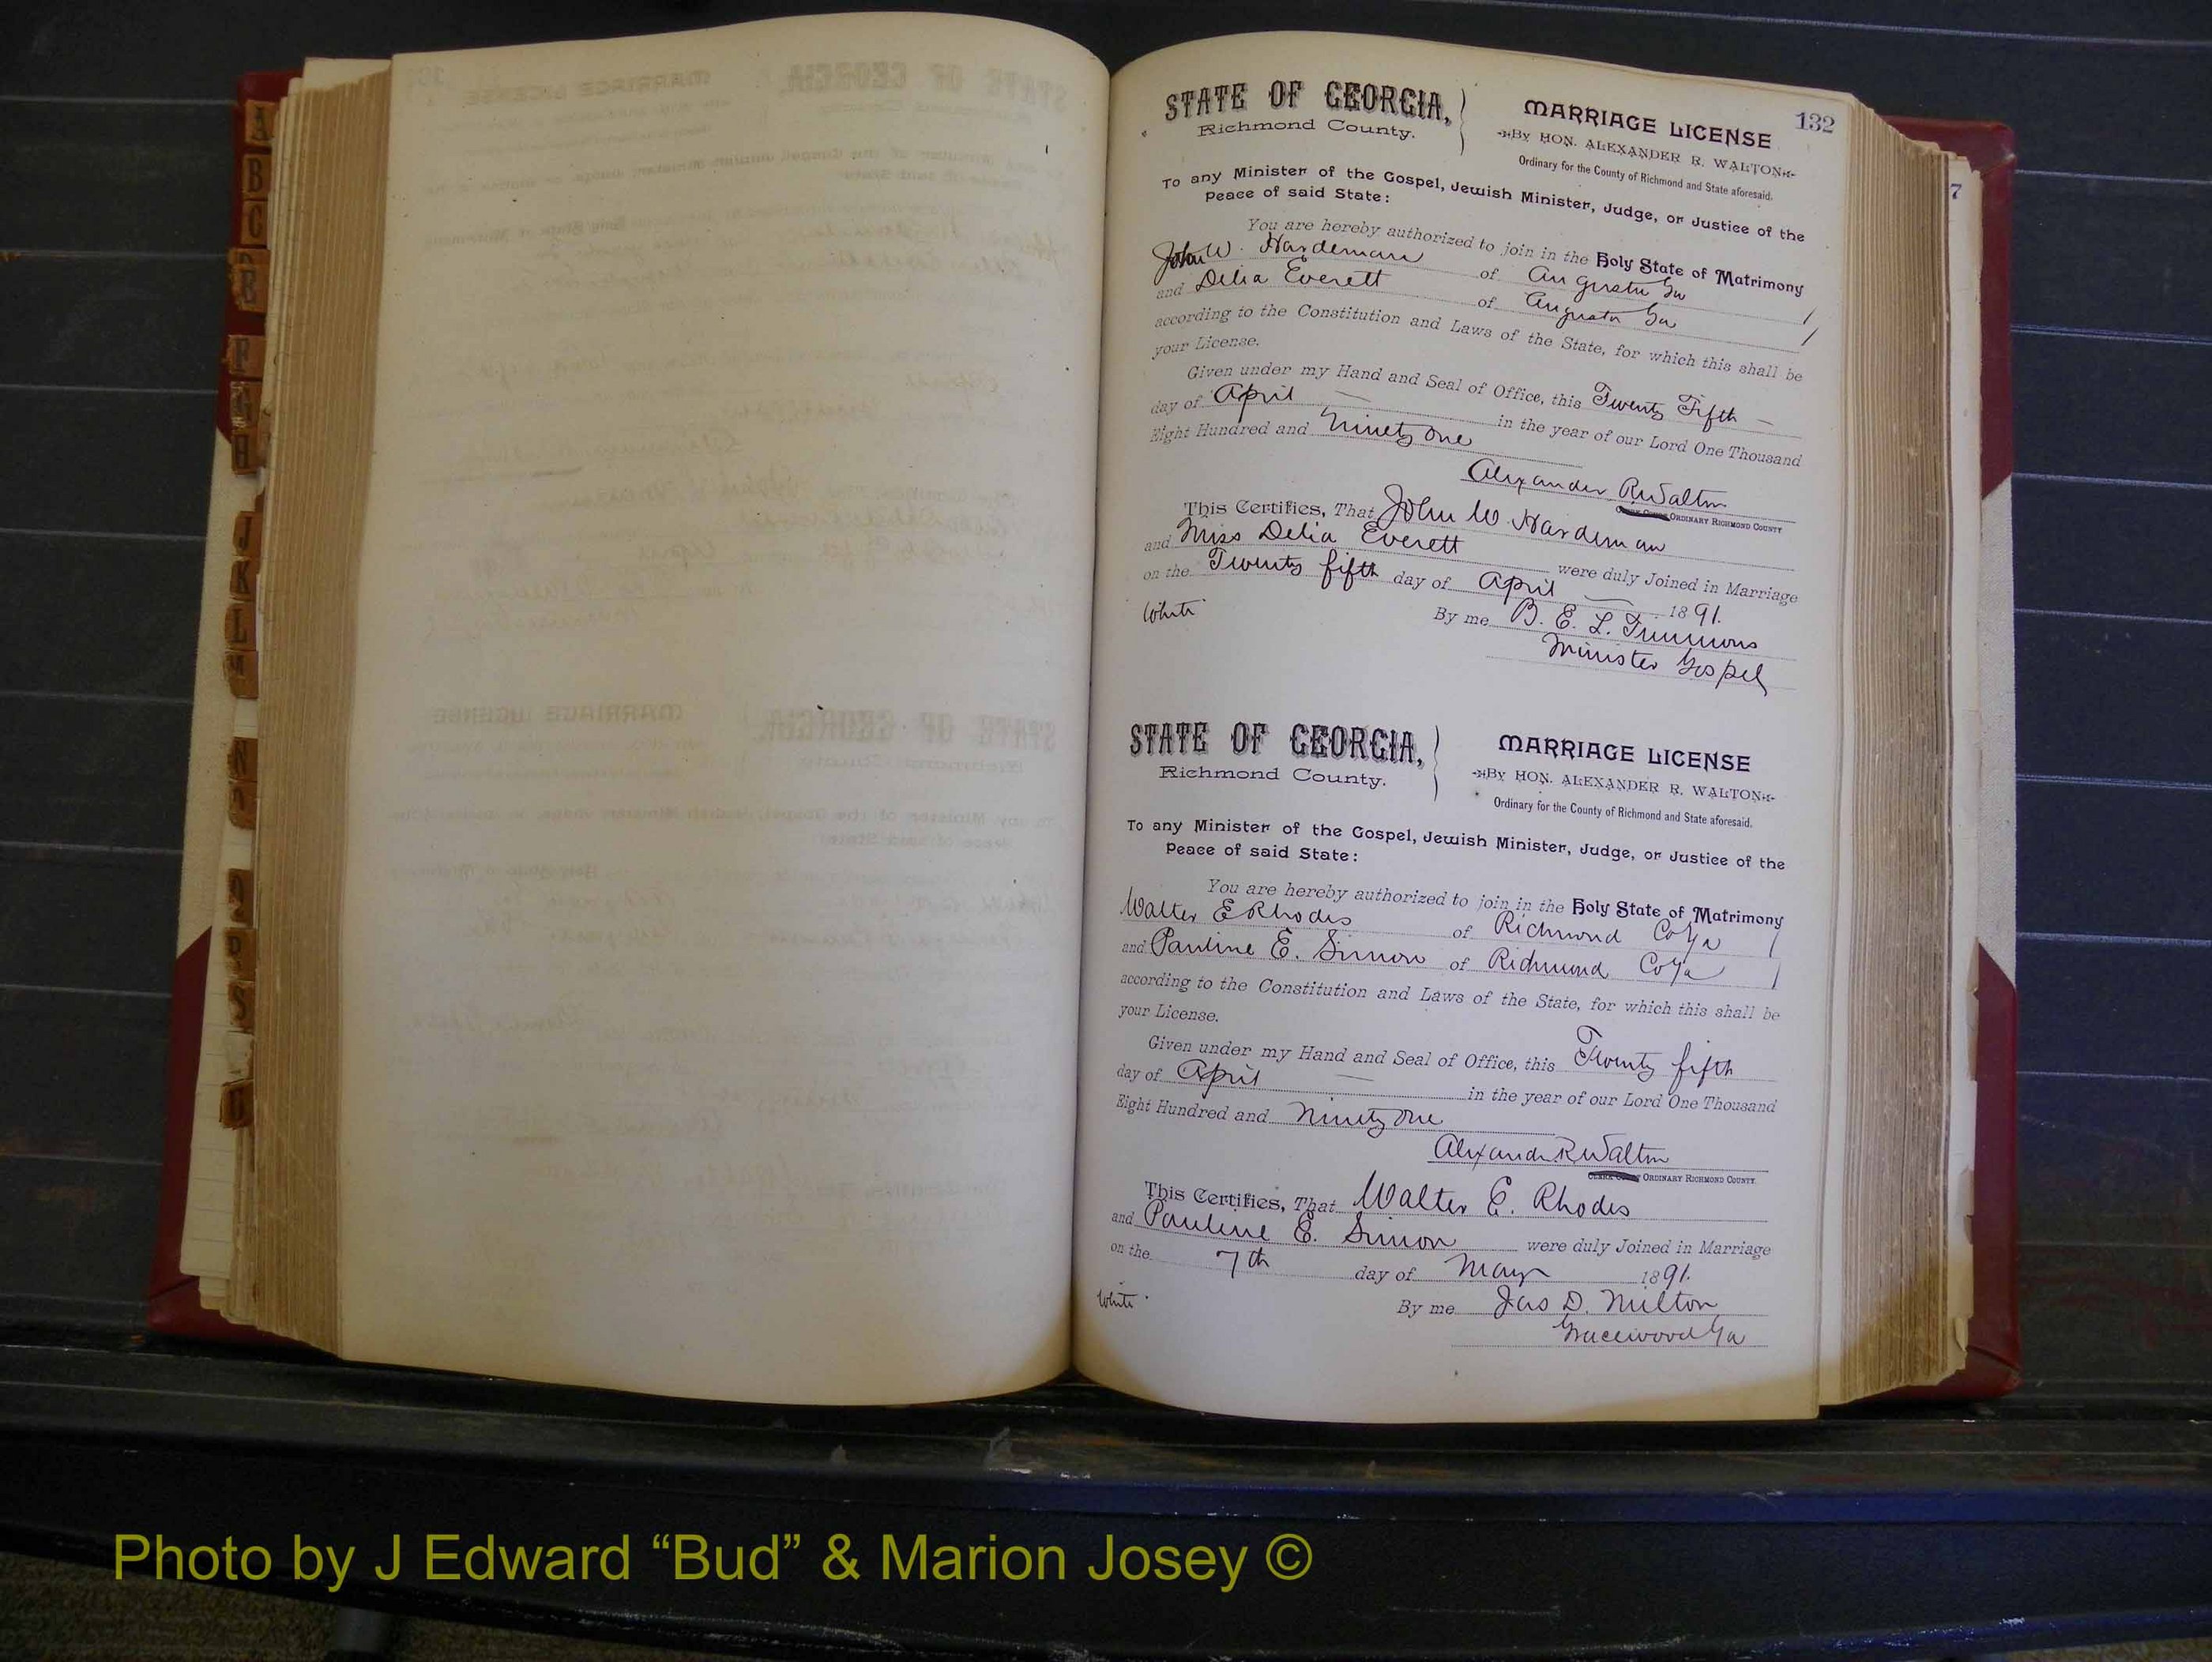 A
B
C
E
F
G
H
J
K
L
M
N
O
P
S
132
7
STATE OF GEORGIA,
Richmond County.
MARRIAGE LICENSE
By HON. ALEXANDER R. WALTON
Ordinary for the County of Richmond and State aforesaid.
To any Minister of the Gospel, Jewish Minister, Judge, or Justice of the
Peace of said State:
You are hereby authorized to join in the Holy State of Matrimony
John W. Hardeman of Augusta Ga
and Delia Everett of Augusta Ga
according to the Constitution and Laws of the State, for which this shall be
your License.
Given under my Hand and Seal of Office, this Twenty Fifth
day of April in the year of our Lord One Thousand
Eight Hundred and Ninety One
Alexander R Walton
ORDINARY RICHMOND COUNTY
This Certifies, That John W. Hardeman
and Miss Delia Everett were duly Joined in Marriage
on the Twenty fifth day of April 1891.
White By me B. E. L. Timmons
Minister Gospel
STATE OF GEORGIA,
Richmond County.
MARRIAGE LICENSE
By HON. ALEXANDER R. WALTON
Ordinary for the County of Richmond and State aforesaid.
To any Minister of the Gospel, Jewish Minister, Judge, or Justice of the
Peace of said State:
You are hereby authorized to join in the Holy State of Matrimony
Walter E Rhodes of Richmond Co Ga
and Pauline E. Simon of Richmond Co Ga
according to the Constitution and Laws of the State, for which this shall be
your License.
Given under my Hand and Seal of Office, this Twenty fifth
day of April in the year of our Lord One Thousand
Eight Hundred and Ninety One
Alexander R Walton
ORDINARY RICHMOND COUNTY.
This Certifies, That Walter E. Rhodes
and Pauline E. Simon were duly Joined in Marriage
on the 7th day of May 1891.
White By me Jas D. Milton
Gracewood Ga
Photo by J Edward “Bud” & Marion Josey ©